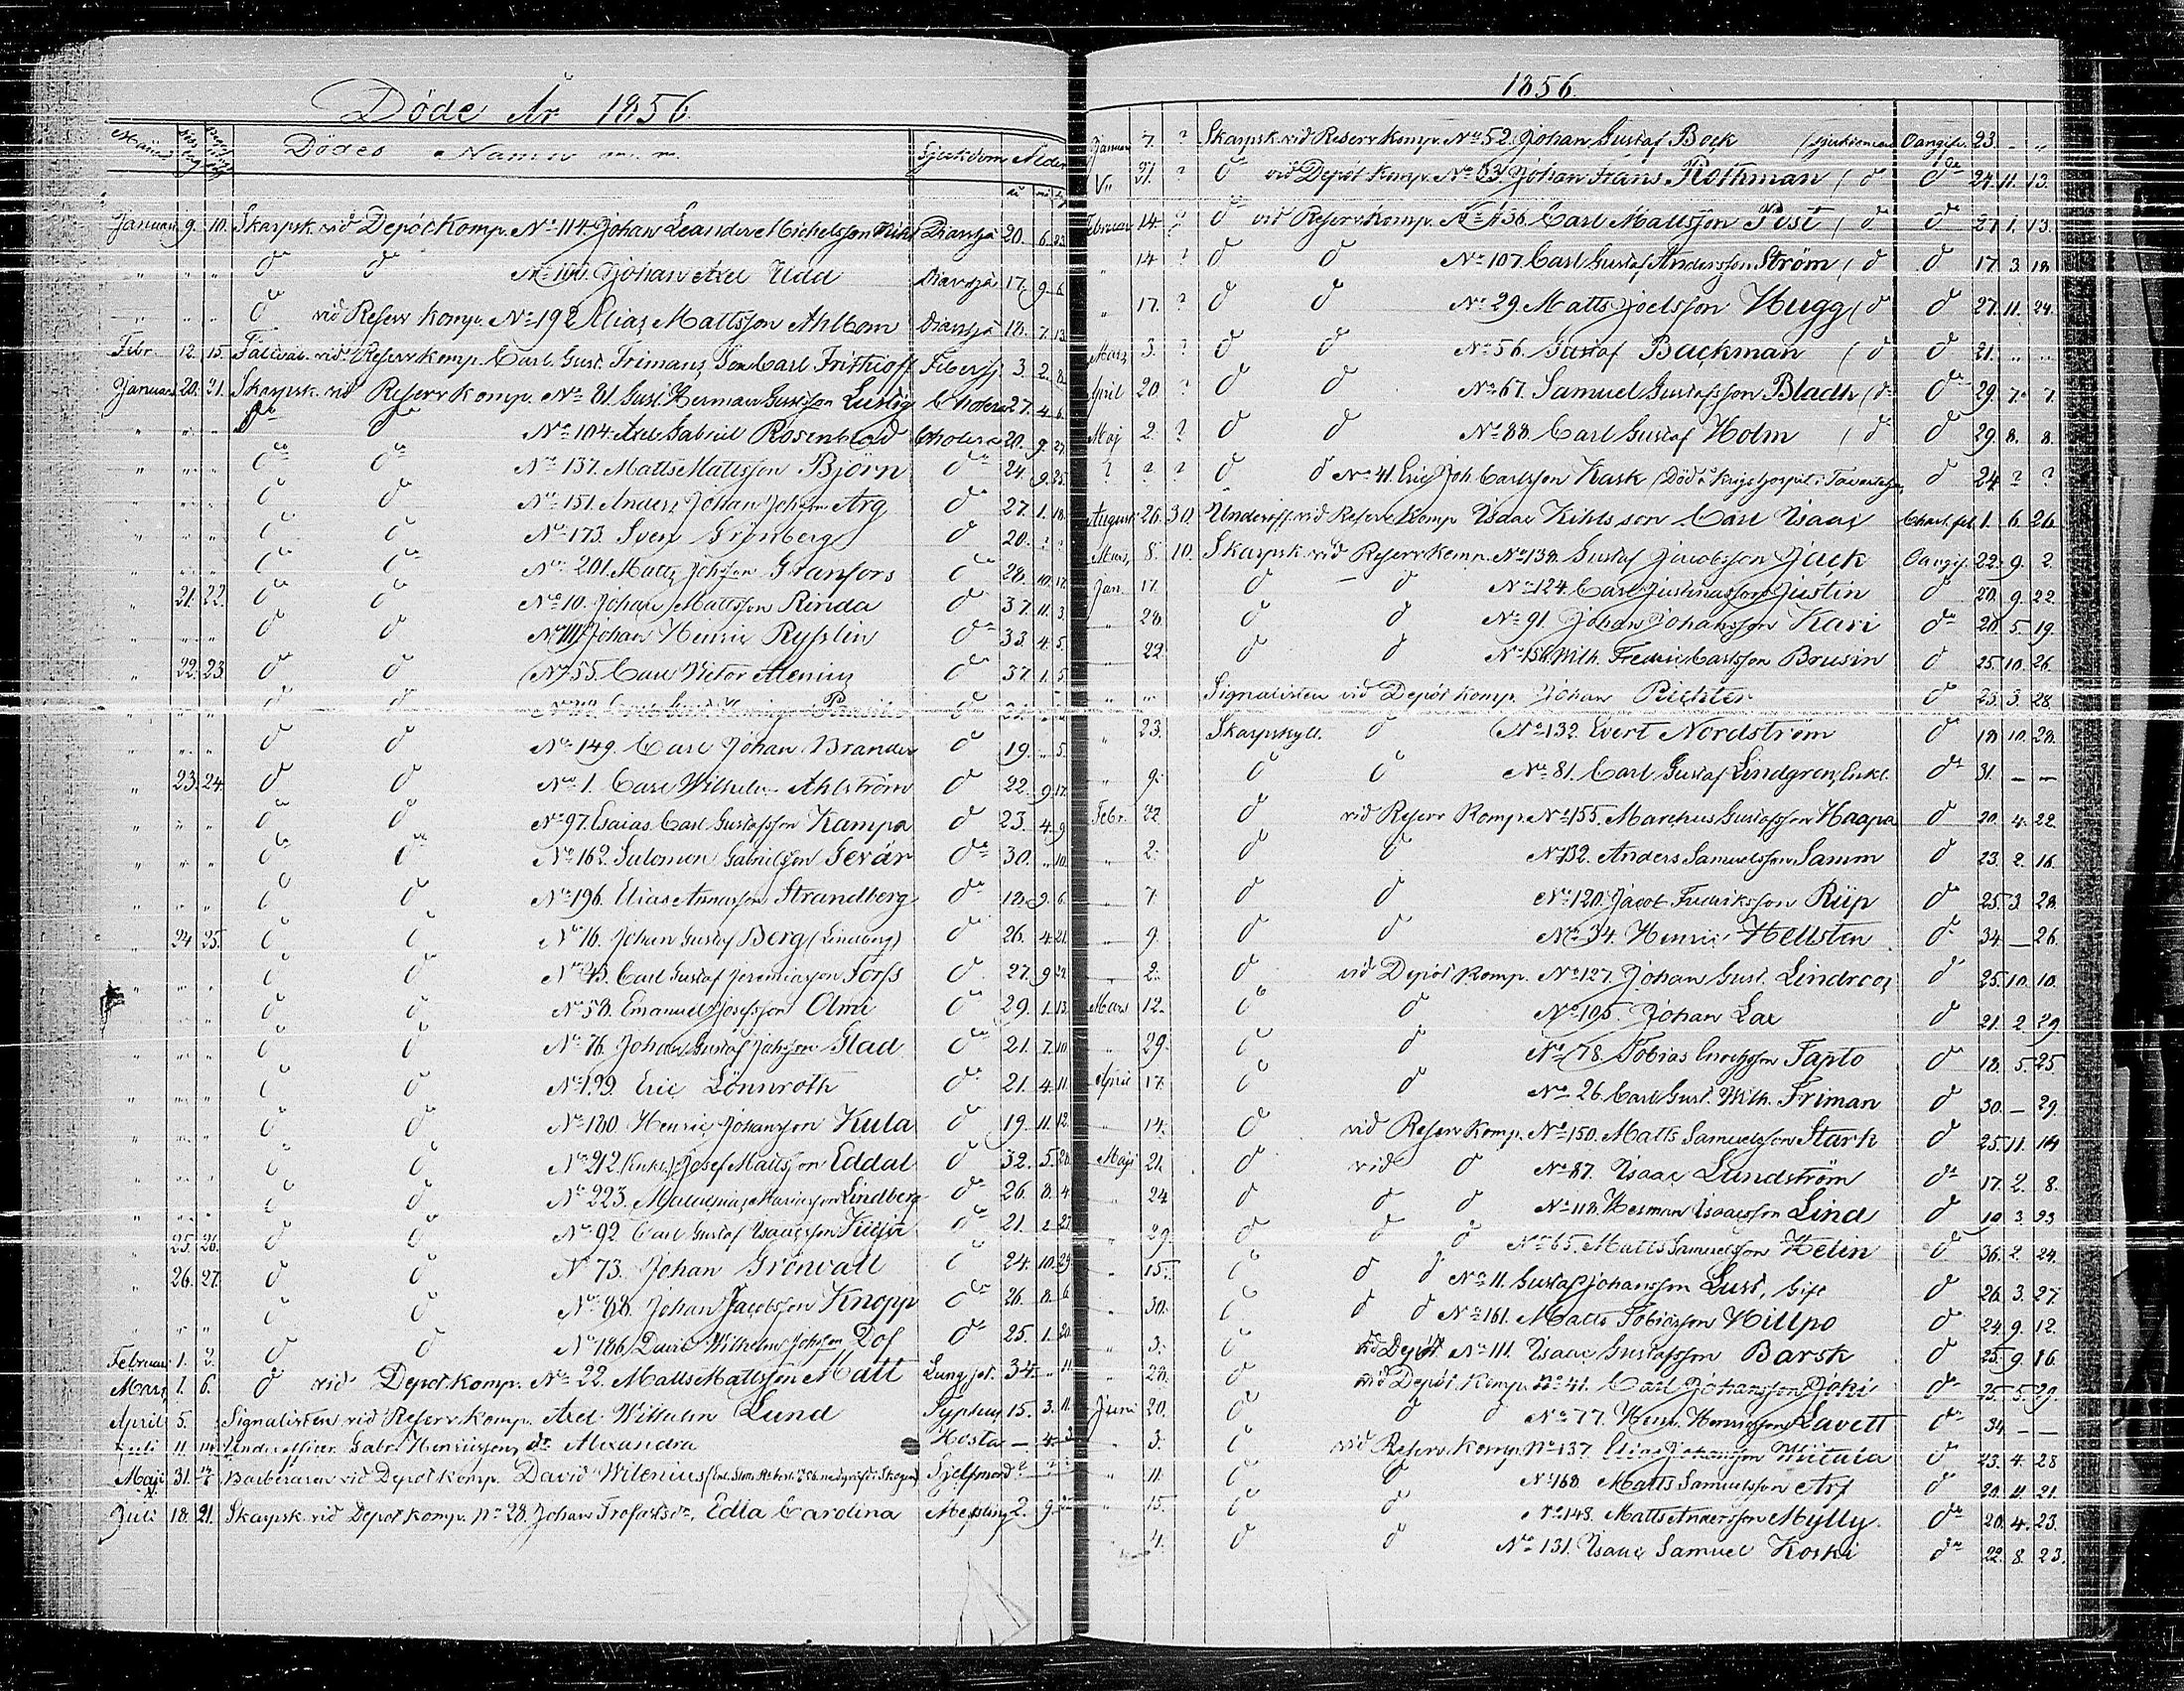 Döde År 1856
Månad Döds dag Begrafnings dag Dödes Namn m. m. Sjukdom Ålder
år må dag
Januari 9. 10. Skarpsk. vid Depôt Komp. No 114. Johan Leander Michelsson Diarrhé 20. 6. 23
" " " do do No 100. Johan Axel Udd Diarrhé 17. 9. 6
" " " do vid Reserv Komp. No 192 Elias Mattsson Ahlbom Diarrhé 18. 7. 13
Febr. 12. 15. Fältväb. vid Reserv Komp. Carl Gust. Frimans Son Carl Frithioff Feber 3. 2. 8
Januari 20. 21. Skarpsk. vid Reserv Komp. No 81. Gust. Herman Gustafsson Lustig Cholera 27. 4. 6.
" " " do do No 104. Axel Gabriel Rosenblad Cholera 20. 9. 27
" " " do do No 137. Matts Mattsson Björn do 24. 9. 25.
" " " do do No 151. Anders Johan Johsson Arg do 27. 1. 18.
" " " do do No 173. Sven Grönberg do 20. ? ?
" " " do do No 201. Matts Johsson Granfors do 28. 10. 17.
" 21. 22. do do No 10. Johan Mattsson Rinda do 37. 11. 3.
" " " do do No 111 Johan Henric Rysslin do 33. 4. 5.
" 22. 23. do do No 55. Carl Victor Alenius do 37. 1. 5
" " " do do do 21.
" " " do do No 149. Carl Johan Brander do 19. " 5.
" 23. 24 do do No 1. Carl Wilhelm Ahlström do 22. 9. 17.
" " " do do No 97. Esaias Carl Gustafsson Kampa do 23. 4. 9
" " " do do No 162. Salomon Gabrielsson Gevär do 30. " 10.
" " " do do No 196. Elias Strandberg do 18. 9. 6.
" 24 25. do do No 16. Johan Gustaf Berg (Lindberg) do 26. 4. 21.
" " " do do No 43. Carl Gustaf Jeremiasson Forss do 27. 9 22.
" " " do do No 58. Emanuel Josefsson Olmi do 29. 1. 13.
" " " do do No 76. Johan Gustaf Johsson Glad do 21. 7. 10.
" " " do do No 199. Eric Lönnroth do 21. 4. 11.
" " " do do No 180. Henric Johansson Kula do 19. 11. 12.
" " " do do No 212. (Enkl.) Josef Mattsson Eddal do 32. 5. 20
" " " do do No 223. Lindberg do 26. 8. 4
" 25. 26. do do No 92. Carl Gustaf Isaacsson do 21. 2. 27
" 26. 27. do do No 73. Johan Grönvall do 24. 10. 29.
do do No 88. Johan Jacobsson Knopp do 26. 8. 6
" " " do do No 186 David Wilhelm Johsson Rof do 25. 1. 20.
Februari 1. 2. do vid Depôt Komp. No 22. Matts Mattsson Matt Lungsot. 34. " 11.
Mars 1. 6.
April 5. Signalisten vid Reserv Komp. Axel Wilhelm Lund Typhus 15. 3. 11.
Juli 11. Underofficer Gabr. Henricssons dr Alexandra Hosta — 4. 3
Maji 31. Barberaren vid Depôt Komp. David Wilenius Sjelfmord ? ? ?
Juli 18. 21. Skarpsk. vid Depôt Komp. No 28. Johan dr, Edla Carolina Messling 2. 9.
1856.
Januari 7. ? Skarpsk. vid Reserv Komp. No 52. Johan Gustaf Bock Oangifv. 23. - "
" 21. ? do vid Depôt Komp. No 83. Johan Frans Rothman ( do do 24. 11. 13.
Februari 14. ? do vid Reserv Komp. No 136. Carl Mattsson Pist ( do do 27. 1. 13.
" 14. ? do do No 107. Carl Gustaf Andersson Ström ( do do 17. 3. 18
" 17. ? do do No 29. Matts Joelsson Hugg ( do do 27. 11. 24.
Mars 3. ? do do No 56. Gustaf Backman ( do do 21. " "
April 20 ? do do No 67. Samuel Gustafsson Bladh ( do do 29. 7. 7.
Maj 2. ? do do No 88. Carl Gustaf Holm ( do do 29. 8. 8.
? ? ? do do No 41. Eric Joh. Carlsson Kask (Död å Krigs hospit. i Tavastehus do 24 ? ?
Augusti 26. 30. Underoff. vid Reserv Komp Isaac Kihls son Carl Isaac 1. 6. 26
Mars 8. 10. Skarpsk. vid Reserv Komp. No 138. Gustaf Jacobsson Jack Oangif. 22. 9. 2.
Jan. 17. do — do No 124. Carl Justinusson Justin do 20. 9. 22
" 28. do do No 91. Johan Johansson Kari do 28. 5. 19.
" 22. do do No 158. Wilh. Fredric Carlsson Brusin do 25. 10. 26.
" " Signalisten vid Depôt Komp. Johan Richter do 23. 3. 28.
" 23. Skarpskytt. do No 132. Evert Nordström do 18 10. 28.
" 9. do do No 81. Carl Gustaf Lindgren, Enkl. do 31. — —
Febr. 22. do vid Reserv Komp. No 155. Marchus Gustafsson Haapa do 20. 4. 22.
" 2. do do No 132. Anders Samuelsson Samm do 23. 2. 16.
" 7. do do No 120. Jacob Fredriksson Riip do 25. 3. 28.
" 9. do do No 34. Henric Hellsten do 34 — 26.
" 2. do vid Depôt Komp. No 127. Johan Gust. Lindroos do 25. 10. 10.
Mars 12. do do No 105. Johan Lax do 21. 2. 29
" 29. do do No 78. Tobias Ericsson Tapto do 18. 5. 25.
April 17. do do No 26. Carl Gust. Wilh. Friman do 30. — 29.
" 14. do vid Reserv Komp. No 150. Matts Samuelsson Stark do 25. 11. 14
Maji 21. do vid do No 87. Isaac Lundström do 17. 2. 8.
" 24 do do do No 118. Herman Isaacsson Lind do 19 3. 23
" 29. do do do No 65. Matts Samuelsson Helin do 36. 2. 24.
" 15. do do do No 11. Gustaf Johansson Lust, Gift do 26. 3. 27.
" 30. do do do No 161. Matts Tobiasson Hillpo do 24. 9. 12.
" 3. do vid Depôt No 111. Isaac Gustafsson Barsk do 25. 9. 16.
" 28. do vid Depôt Komp. No 41. Carl Johansson Joki do 25. 5. 29.
Juni 20. do do do No 77. Henr. Henricsson Lavett do 34 — —
" 3. do vid Reserv Komp. No 137. Elias Johansson Miitala do 23. 4. 28
" 11. do do No 168. Matts Samuelsson Arf do 20. 11. 21.
" 15. do do No 148. Matts Andersson Mylly do 20. 4. 23.
4. do do No 131. Isaac Samuel Koski do 22. 8. 23.